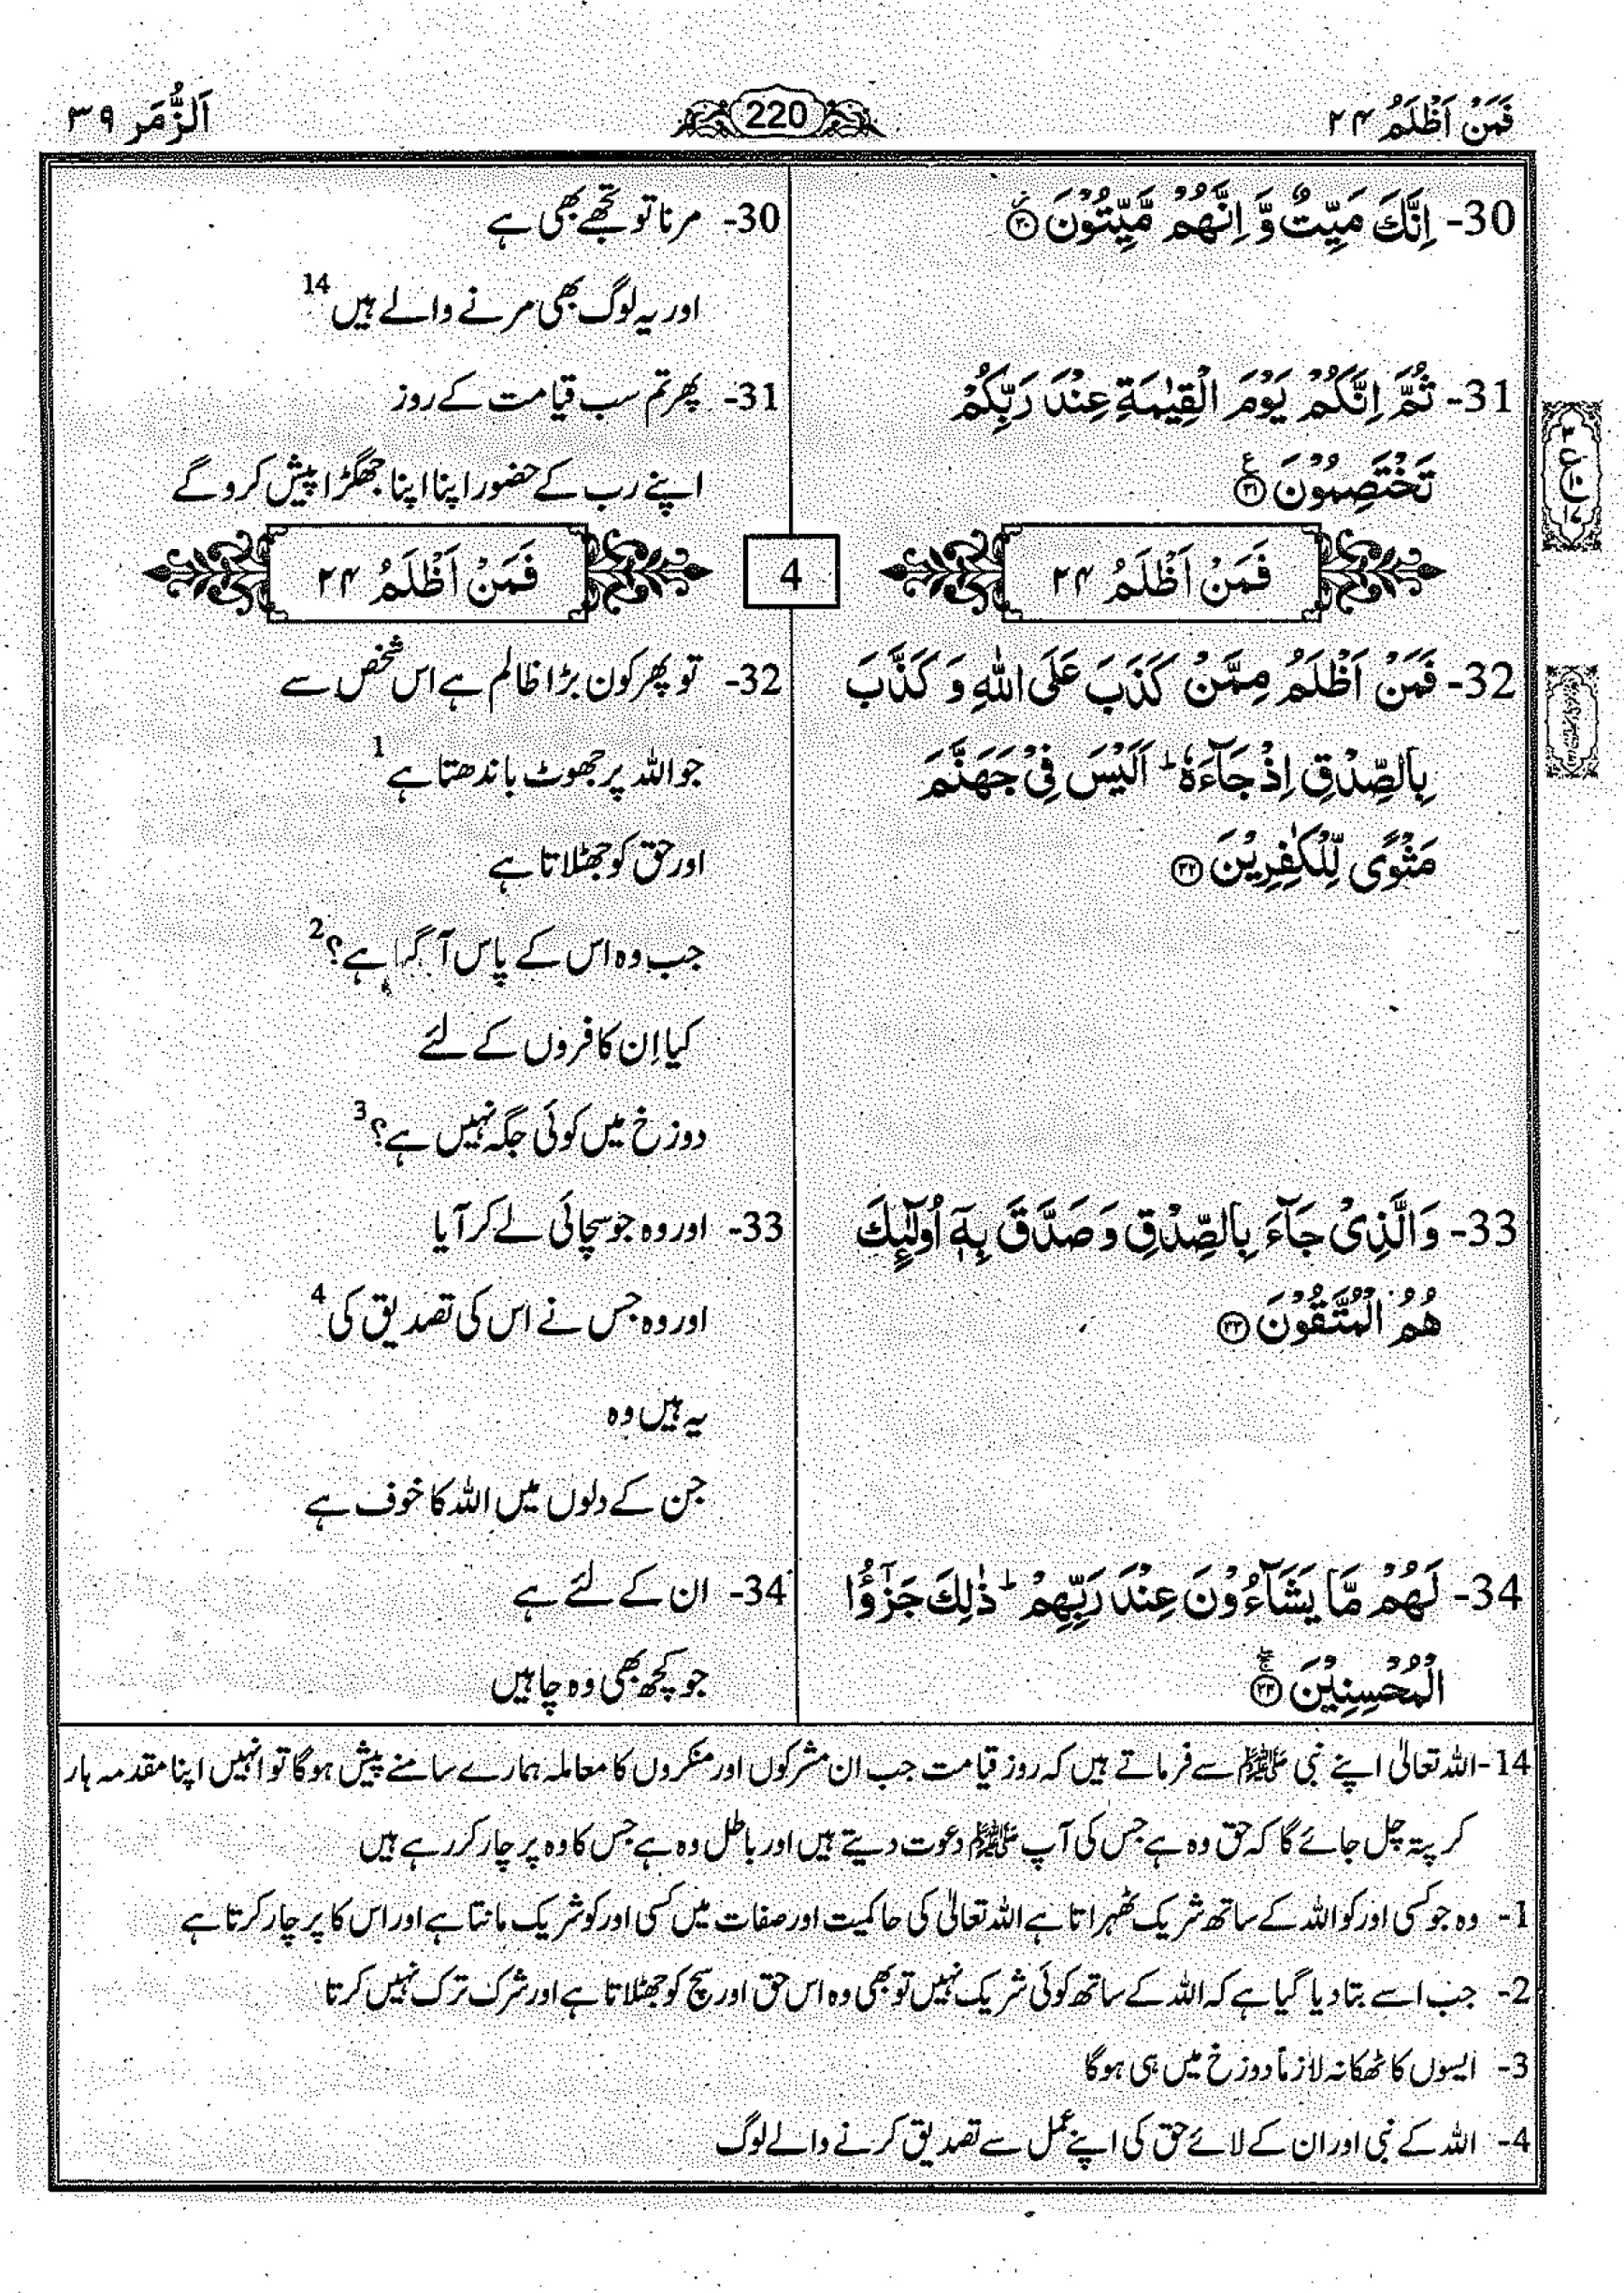 فَمَنْ اَظْلَمُ ۲۴
220
اَلزُّمَر ۳۹
30- اِنَّكَ مَيِّتٌ وَّ اِنَّهُمْ مَّيِّتُوْنَ ۳۰
31- ثُمَّ اِنَّكُمْ يَوْمَ الْقِيٰمَةِ عِنْدَ رَبِّكُمْ
تَخْتَصِمُوْنَ ۳۱
فَمَنْ اَظْلَمُ ۲۴
32- فَمَنْ اَظْلَمُ مِمَّنْ كَذَبَ عَلَى اللّٰهِ وَ كَذَّبَ
بِالصِّدْقِ اِذْ جَآءَهٗ ؕ اَلَيْسَ فِيْ جَهَنَّمَ
مَثْوًى لِّلْكٰفِرِيْنَ ۳۲
33- وَالَّذِيْ جَآءَ بِالصِّدْقِ وَ صَدَّقَ بِهٖۤ اُولٰٓئِكَ
هُمُ الْمُتَّقُوْنَ ۳۳
34- لَهُمْ مَّا يَشَآءُوْنَ عِنْدَ رَبِّهِمْ ؕ ذٰلِكَ جَزٰٓؤُا
الْمُحْسِنِيْنَ ۳۴
30- مرنا تو تجھے بھی ہے
اور یہ لوگ بھی مرنے والے ہیں 14
31- پھر تم سب قیامت کے روز
اپنے رب کے حضور اپنا اپنا جھگڑا پیش کرو گے
4
فَمَنْ اَظْلَمُ ۲۴
32- تو پھر کون بڑا ظالم ہے اس شخص سے
جو اللہ پر جھوٹ باندھتا ہے 1
اور حق کو جھٹلاتا ہے
جب وہ اس کے پاس آ گیا ہے؟ 2
کیا اِن کافروں کے لئے
دوزخ میں کوئی جگہ نہیں ہے؟ 3
33- اور وہ جو سچائی لے کر آیا
اور وہ جس نے اس کی تصدیق کی 4
یہ ہیں وہ
جن کے دلوں میں اللہ کا خوف ہے
34- ان کے لئے ہے
جو کچھ بھی وہ چاہیں
14- اللہ تعالیٰ اپنے نبی ﷺ سے فرماتے ہیں کہ روز قیامت جب ان مشرکوں اور منکروں کا معاملہ ہمارے سامنے پیش ہوگا تو انہیں اپنا مقدمہ ہار
کر پتہ چل جائے گا کہ حق وہ ہے جس کی آپ ﷺ دعوت دیتے ہیں اور باطل وہ ہے جس کا وہ پرچار کر رہے ہیں
1- وہ جو کسی اور کو اللہ کے ساتھ شریک ٹھہراتا ہے اللہ تعالیٰ کی حاکمیت اور صفات میں کسی اور کو شریک مانتا ہے اور اس کا پرچار کرتا ہے
2- جب اسے بتا دیا گیا ہے کہ اللہ کے ساتھ کوئی شریک نہیں تو بھی وہ اس حق اور سچ کو جھٹلاتا ہے اور شرک ترک نہیں کرتا
3- ایسوں کا ٹھکانہ لازماً دوزخ میں ہی ہوگا
4- اللہ کے نبی اور ان کے لائے حق کی اپنے عمل سے تصدیق کرنے والے لوگ